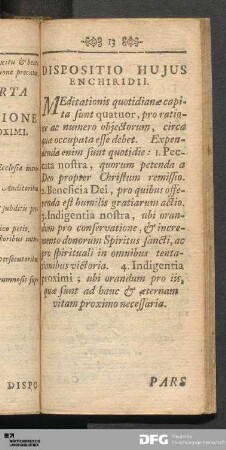 13
DISPOSITIO HUJUS
ENCHIRIDII.
MEditationis quotidianæ capi-
ta sunt quatuor, pro ratio-
ac numero objectorum, circa
quæ occupata esse debet. Expen-
denda enim sunt quotidie: 1. Pec-
cata nostra, quorum petenda a
Deo propter Christum remissio,
2. Beneficia Dei, pro quibus offe-
renda est humilis gratiarum actio,
3. Indigentia nostra, ubi oran-
dum pro conservatione, & incre-
mento donorum Spiritus sancti, ac
pro spirituali in omnibus tenta-
tionibus victoria. 4. Indigentia
proximi, ubi orandum pro iis,
quæ sunt ad hanc & æternam
vitam proximo necessaria.
PARS
RTA
IONE
OXIMI.
Ecclesia
Anditoribu
DISPO
DFG